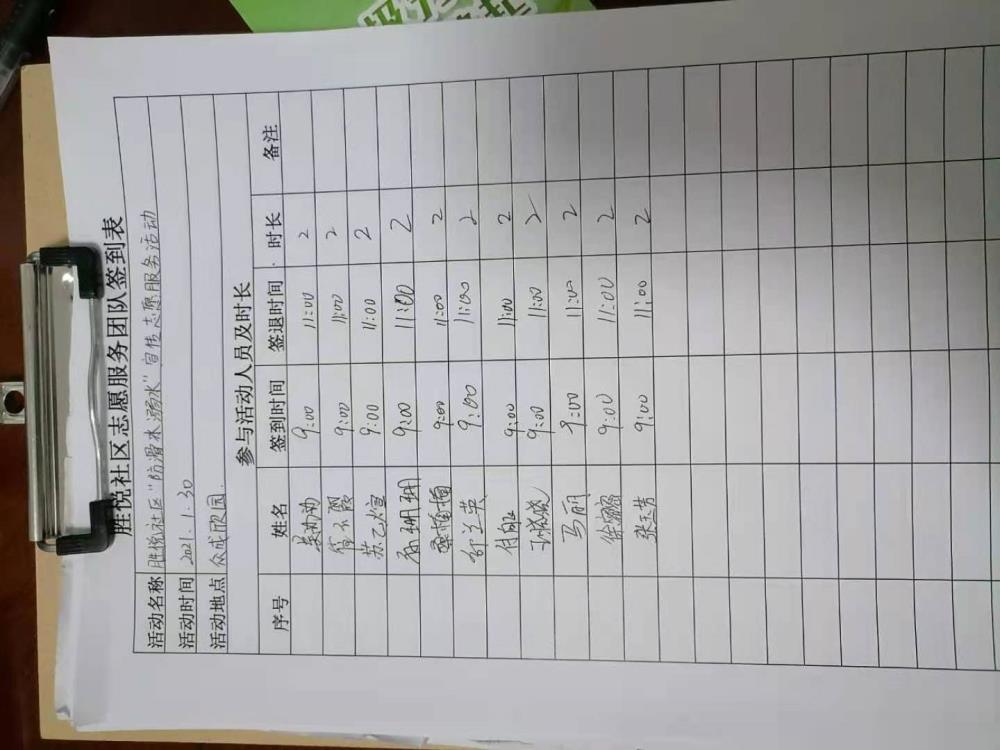 胜悦社区志愿服务团队签到表
活动名称 胜悦社区"防滑水溺水"宣传志愿服务活动
活动时间 2021.1.30
活动地点 众成欣园
参与活动人员及时长
序号 姓名 签到时间 签退时间 时长 备注
9:00 11:00 2
9:00 11:00 2
苏乙煊 9:00 11:00 2
孙珊珊 9:00 11:00 2
桑楠楠 9:00 11:00 2
舒兰英 9:00 11:00 2
9:00 11:00 2
王晓晓 9:00 11:00 2
马丽 9:00 11:00 2
9:00 11:00 2
张玉芳 9:00 11:00 2